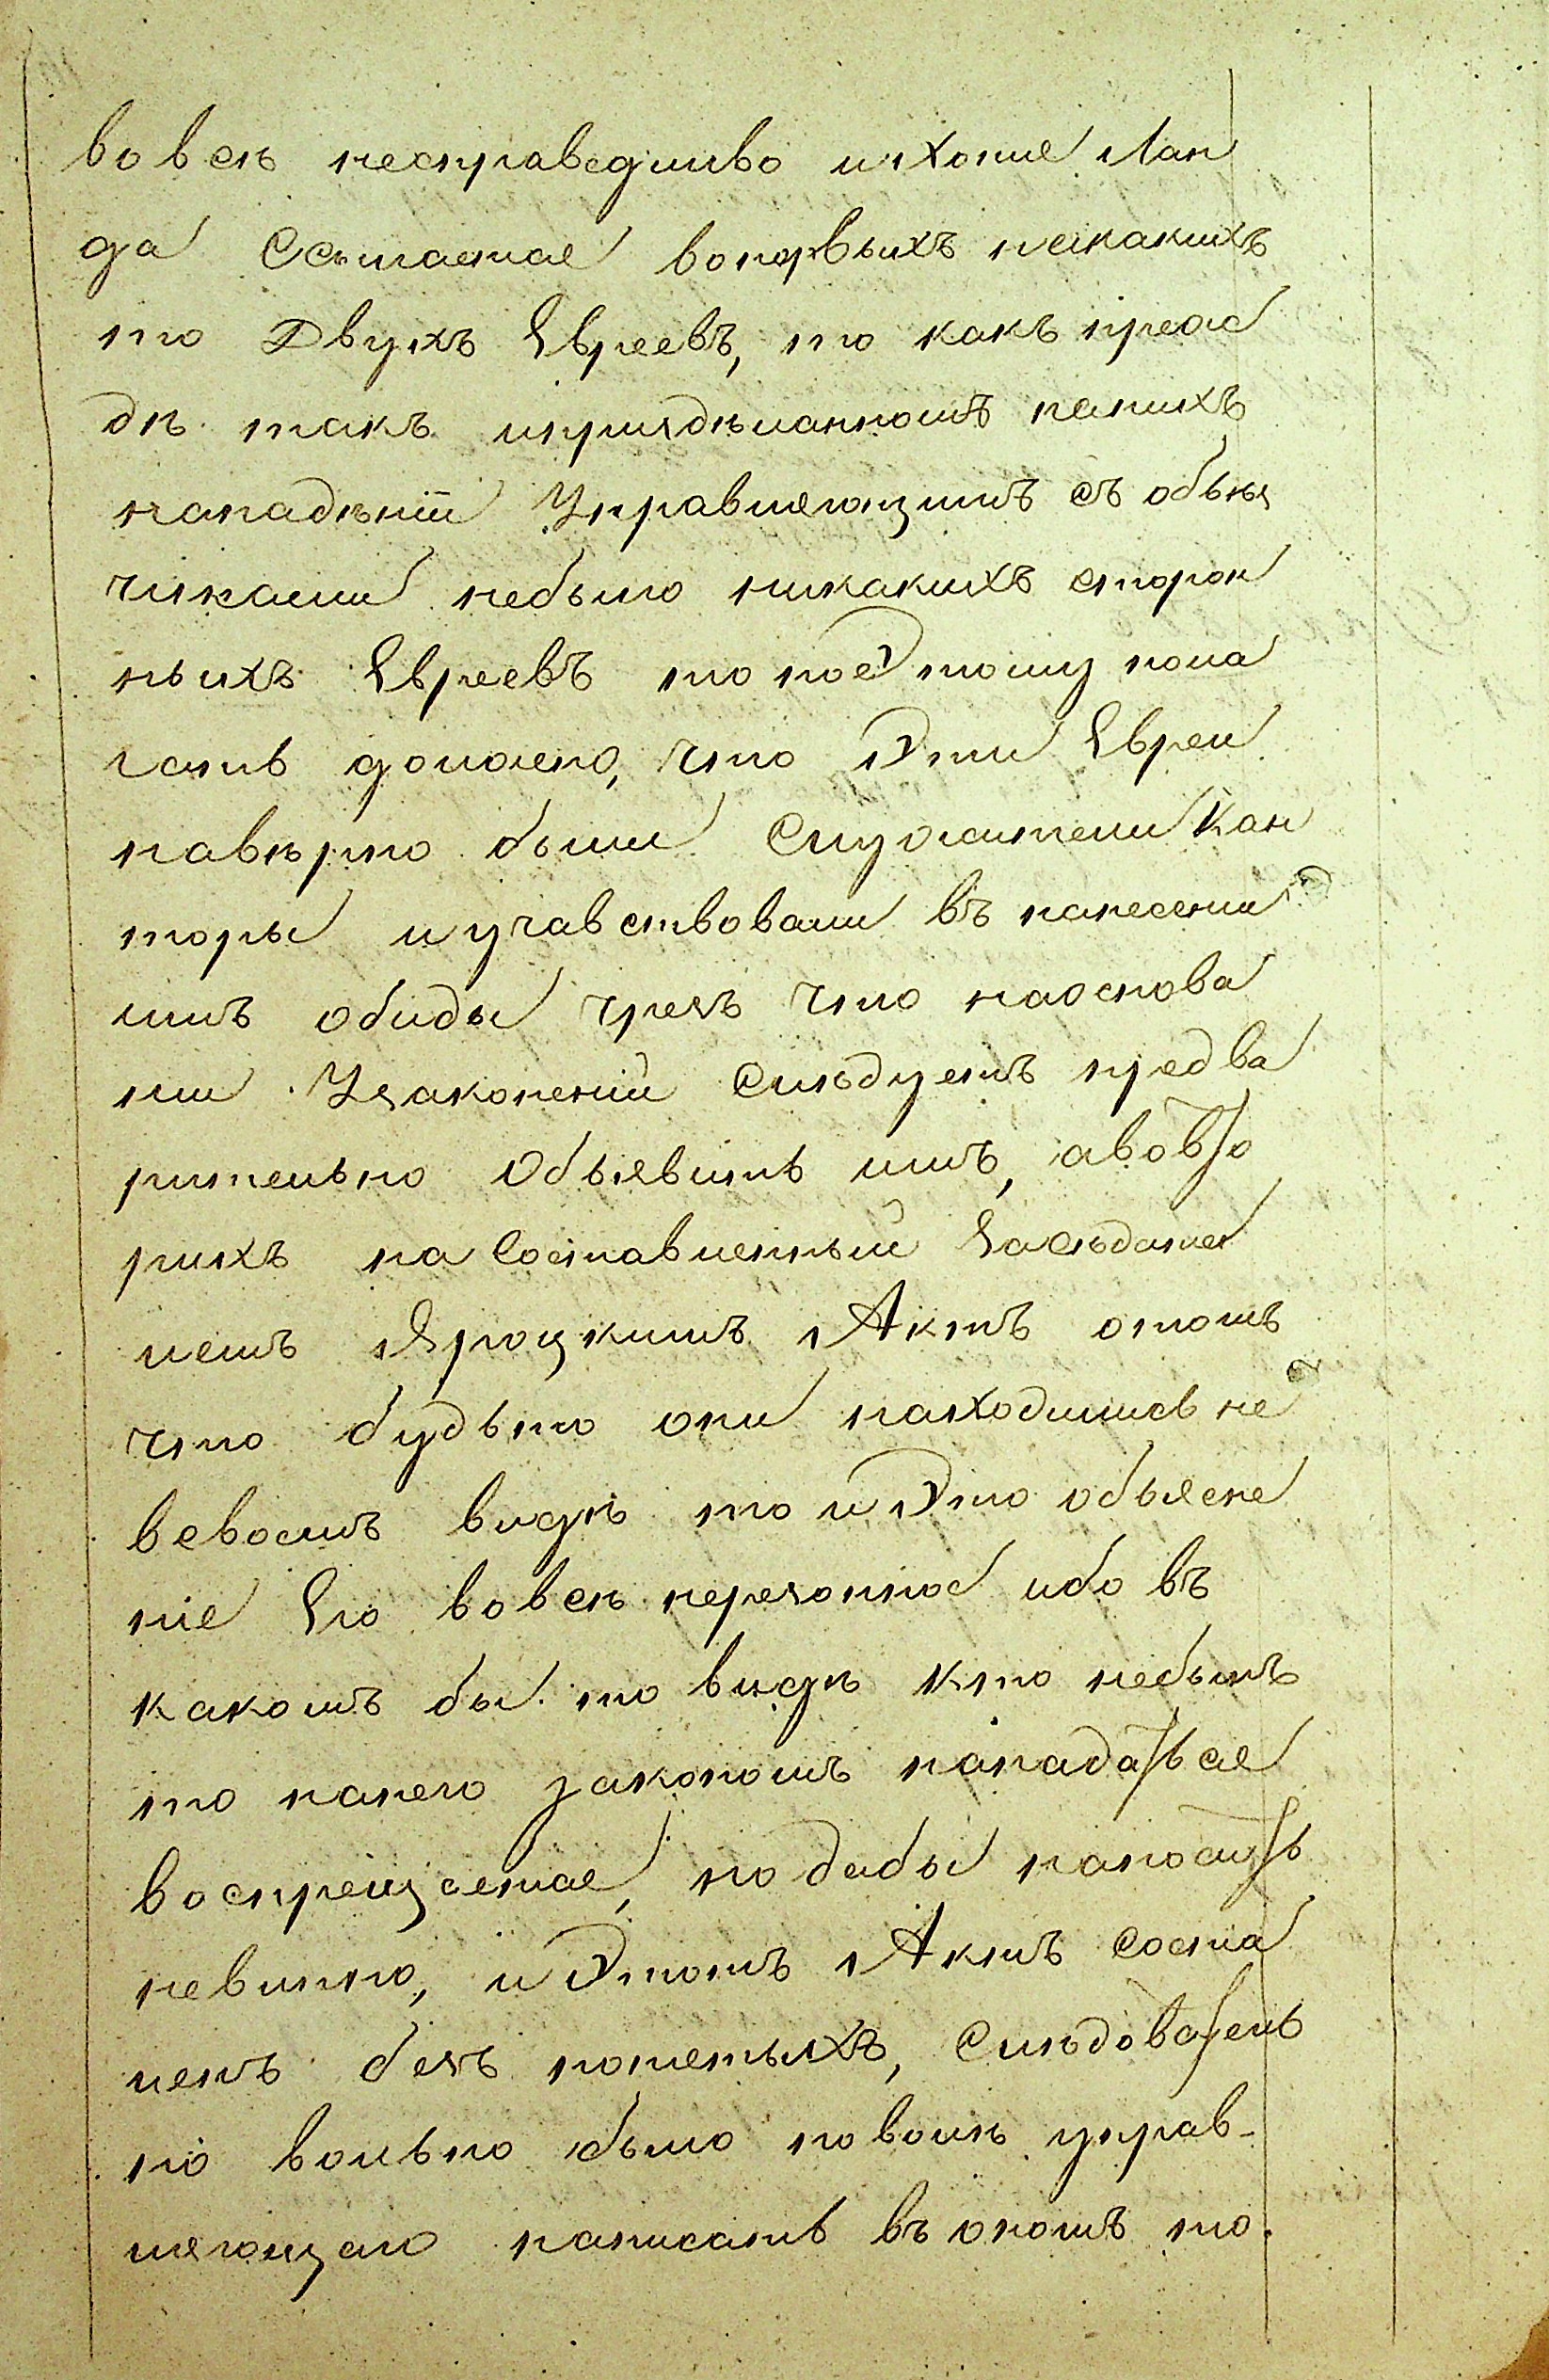 вовсѣ несправедливо и хотя Лан
да Ссылается вопервыхъ на какихъ
то Двухъ Евреевъ, то какъ преж
дѣ такъ и при здѣланномъ на нихъ
нападѣніи Управляющимъ съ объѣз
чиками небыло никакихъ сторон
ныхъ Евреевъ то поэтому пола
гать должно, что Эти Евреи
навѣрно были Служители Кан
торы и учавствовали въ нанесении
имъ обиды чрезъ что наоснова
нии Узаконений Слѣдуетъ предва
рительно Объявить имъ, авовто
рихъ на Составленный Засѣдате
лемъ Яроцкимъ Актъ отомъ
что будьто они находились не
всвоемъ видѣ то и Это объясне
ніе Его вовсѣ нерезонное ибо въ
какомъ бы то видѣ кто небылъ
то нанего закономъ нападаться
воспрещается, но дабы наносить
невинно, и Этотъ Актъ соста
ленъ безъ понетыхъ, Слѣдователь
но вольно было поволѣ управ-
ляющаго написать въ ономъ то